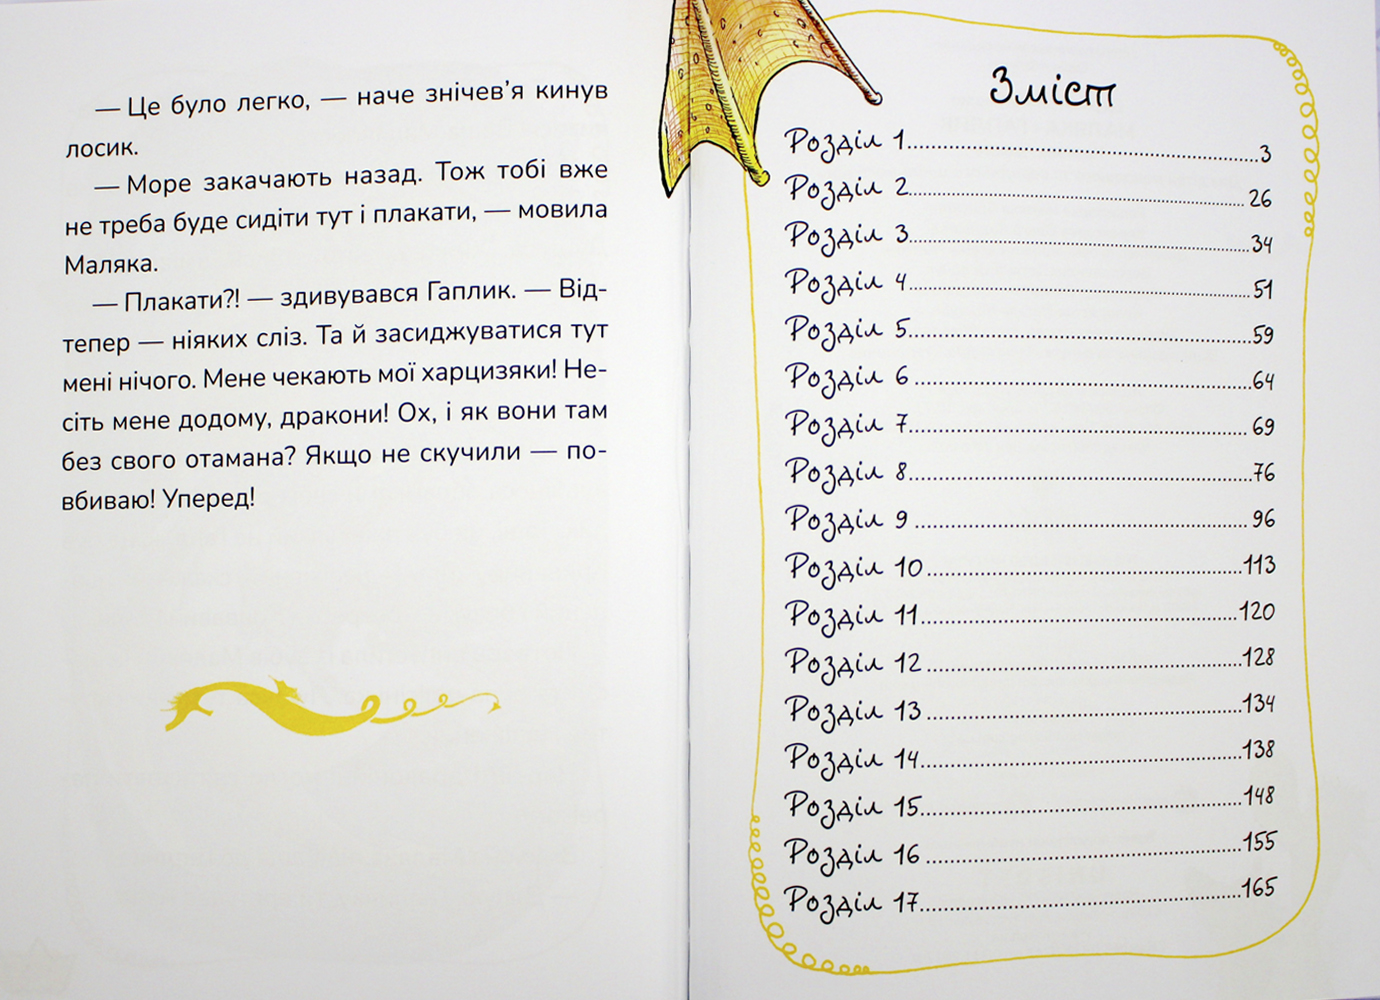 — Це було легко, — наче знічев’я кинув
лосик.
— Море закачають назад. Тож тобі вже
не треба буде сидіти тут і плакати, — мовила
Маляка.
— Плакати?! — здивувався Гаплик. — Від-
тепер — ніяких сліз. Та й засиджуватися тут
мені нічого. Мене чекають мої харцизяки! Не-
сіть мене додому, дракони! Ох, і як вони там
без свого отамана? Якщо не скучили — по-
вбиваю! Уперед!
Зміст
Розділ 1..........3
Розділ 2..........26
Розділ 3..........34
Розділ 4..........51
Розділ 5..........59
Розділ 6..........64
Розділ 7..........69
Розділ 8..........76
Розділ 9..........96
Розділ 10..........113
Розділ 11..........120
Розділ 12..........128
Розділ 13..........134
Розділ 14..........138
Розділ 15..........148
Розділ 16..........155
Розділ 17..........165